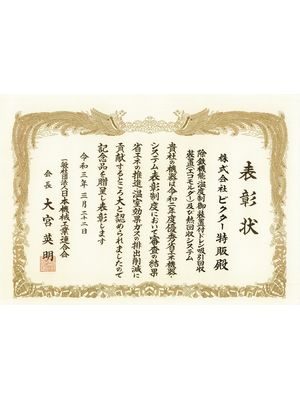 表彰状
株式会社ビクター特販殿
除鉄機能・温度制御装置付ドレン吸引回収
装置(エコモルダー)及び熱回収システム
貴社の機器は令和二年度優秀省エネ機器・
システム表彰制度において審査の結果
省エネの推進、温室効果ガスの排出削減に
貢献するところ大と認められましたので
記念品を贈呈し表彰します
令和三年三月二十二日
一般社団法人日本機械工業連合会
会長 大宮英明